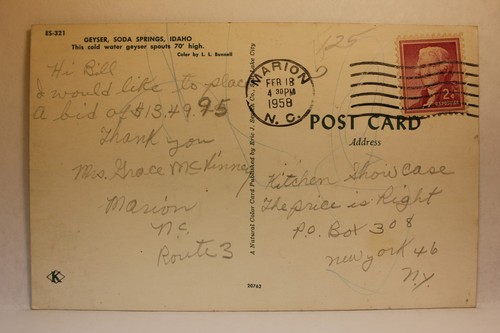 ES-321
GEYSER, SODA SPRINGS, IDAHO
This cold water geyser spouts 70' high.
Color by L. L. Bunnell
Hi Bill
I would like to place
A bid of $13,49995
Thank you
Mrs. Grace McKinney
Marion
N.C.
Route 3
K
A Natural Color Card Published by Eric J. Seaich Co., Salt Lake City
20762
125
MARION
FEB 18
4 30PM
1958
N. C.
2¢
U.S. POSTAGE
POST CARD
Address
Kitchen Showcase
The price is Right
P.O. Box 308
New york 46
N.Y.